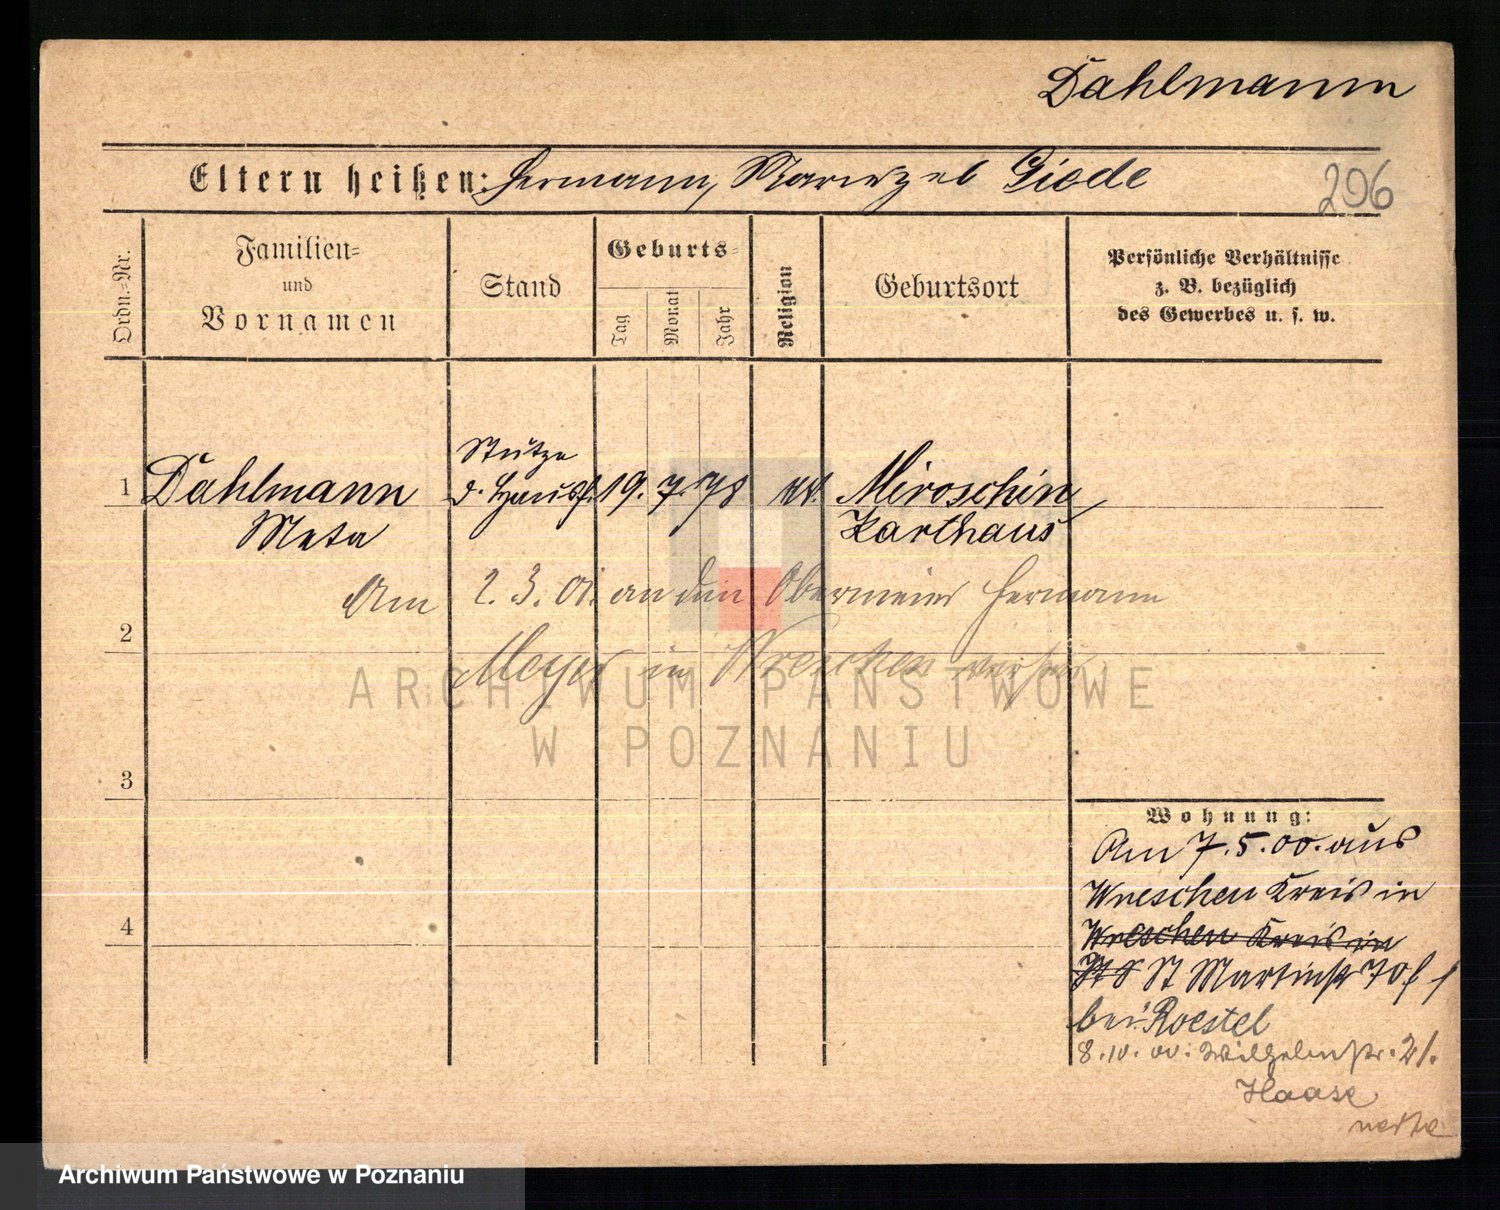 Dahlmann
Eltern heißen: Hermann, Marie geb Giede
206
Ordn.-Nr.
Familien-
und
Vornamen
Stand
Geburts-
Tag
Monat
Jahr
Religion
Geburtsort
Persönliche Verhältnisse
z. B. bezüglich
des Gewerbes u. s. w.
Stütze
1 Dahlmann d. Hausf. 19. 7. 78 ev. Miroschin
Meta Karthaus
Am 2. 3. 01. an den Hermann
2
Meyer in Wreschen
ARCHIWUM PAŃSTWOWE
W POZNANIU
3
Wohnung:
Am 7. 5. 00. aus
Wreschen Kreis in
4
Wreschen Kreis in
St Martinstr 70
bei Roestel
8. 10. 00. Wilhelmstr. 21.
Haase
Archiwum Państwowe w Poznaniu